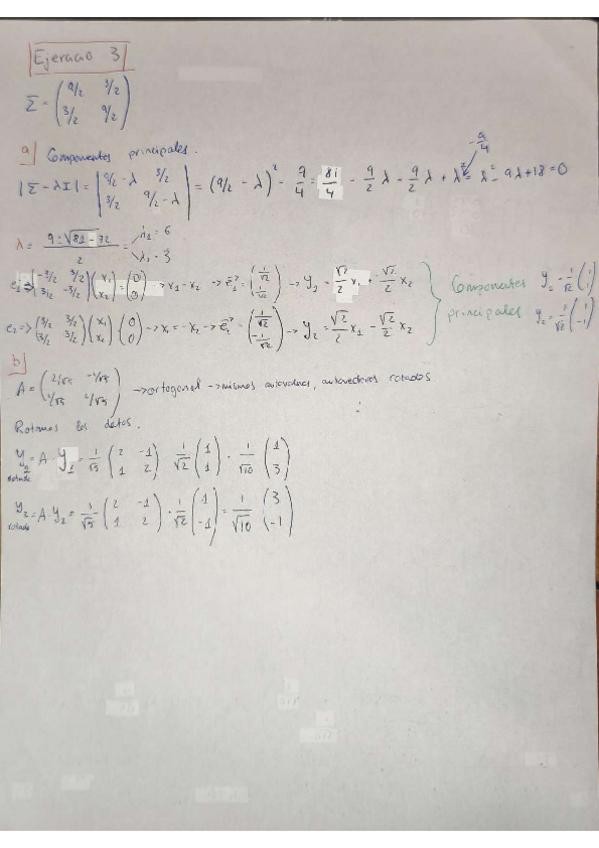 Ejercicio 3
Σ = (9/2 3/2 ; 3/2 9/2)
a) Componentes principales.
|Σ - λI| = |9/2 - λ 3/2 ; 3/2 9/2 - λ| = (9/2 - λ)² - 9/4 = 81/4 - 9/2 λ - 9/2 λ + λ² - 9/4 = λ² - 9λ + 18 = 0
λ = (9 ± √(81 - 72))/2 = λ₁ = 6
λ₂ = 3
e₁ => (-3/2 3/2 ; 3/2 -3/2)(x₁ ; x₂) = (0 ; 0) -> x₁ = x₂ -> e₁ = (1/√2 ; 1/√2) -> y₁ = √2/2 x₁ + √2/2 x₂
e₂ => (3/2 3/2 ; 3/2 3/2)(x₁ ; x₂) (0 ; 0) -> x₁ = -x₂ -> e₂ = (1/√2 ; -1/√2) -> y₂ = √2/2 x₁ - √2/2 x₂
Componentes principales y₁ = 1/√2 (1 ; 1)
y₂ = 1/√2 (1 ; -1)
b)
A = (2/√5 -1/√5 ; 1/√5 2/√5) -> ortogonal -> mismos autovalores, autovectores rotados
Rotamos los datos.
rotado = A · y₁ = 1/√5 (2 -1 ; 1 2) 1/√2 (1 ; 1) · 1/√10 (1 ; 3)
y₂ rotado = A · y₂ = 1/√5 (2 -1 ; 1 2) · 1/√2 (1 ; -1) = 1/√10 (3 ; -1)